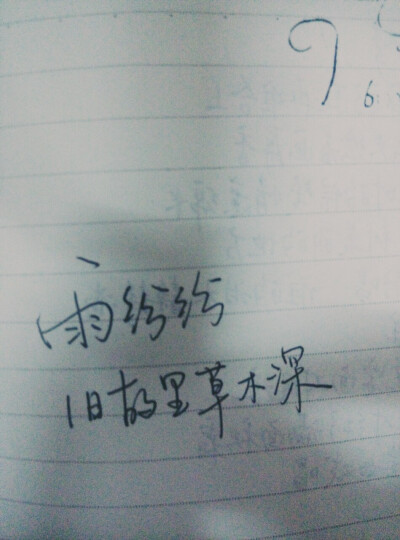 雨纷纷
旧故里草木深